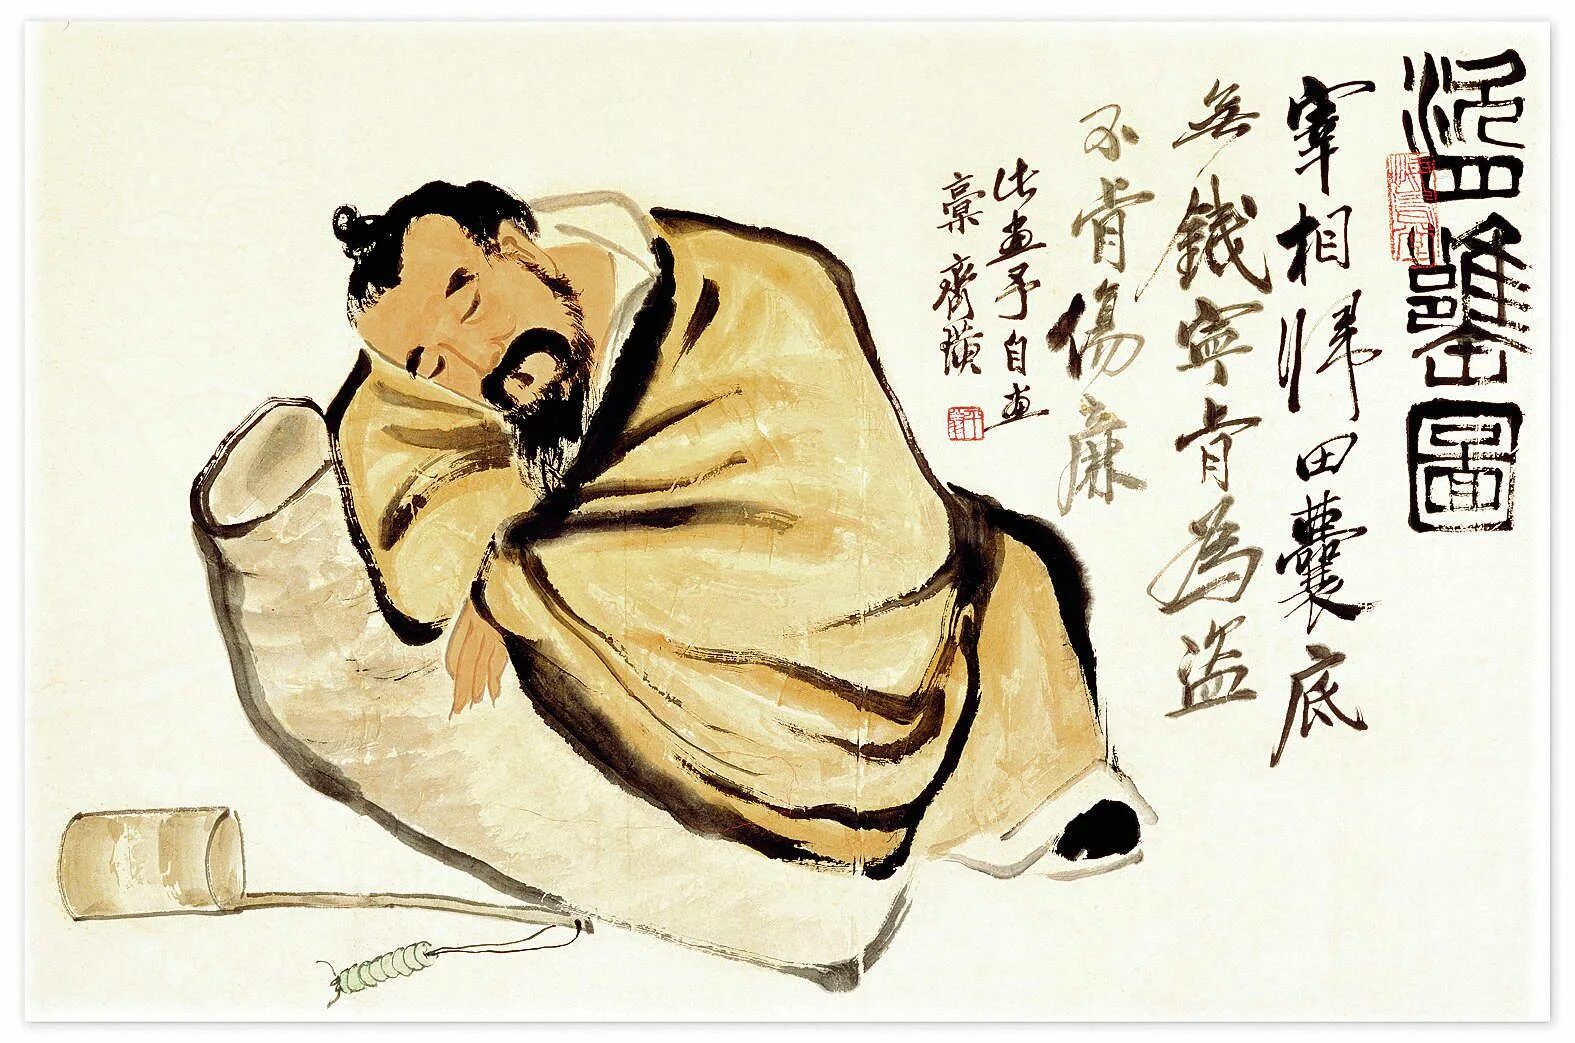 盜甕圖
宰相歸田囊底
無錢寧肯為盜
不肯傷廉
此畫予自畫
稾齊璜